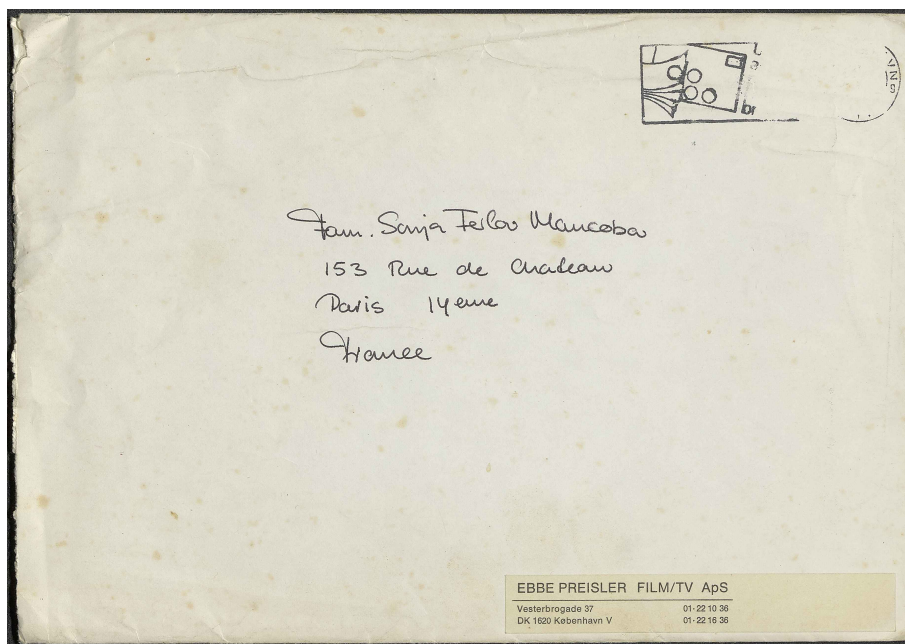 Fam. Sonja Ferlov Mancoba
153 Rue de Chateau
Paris 14eme
France
EBBE PREISLER FILM/TV ApS
Vesterbrogade 37 01-22 10 36
DK 1620 København V 01-22 16 36